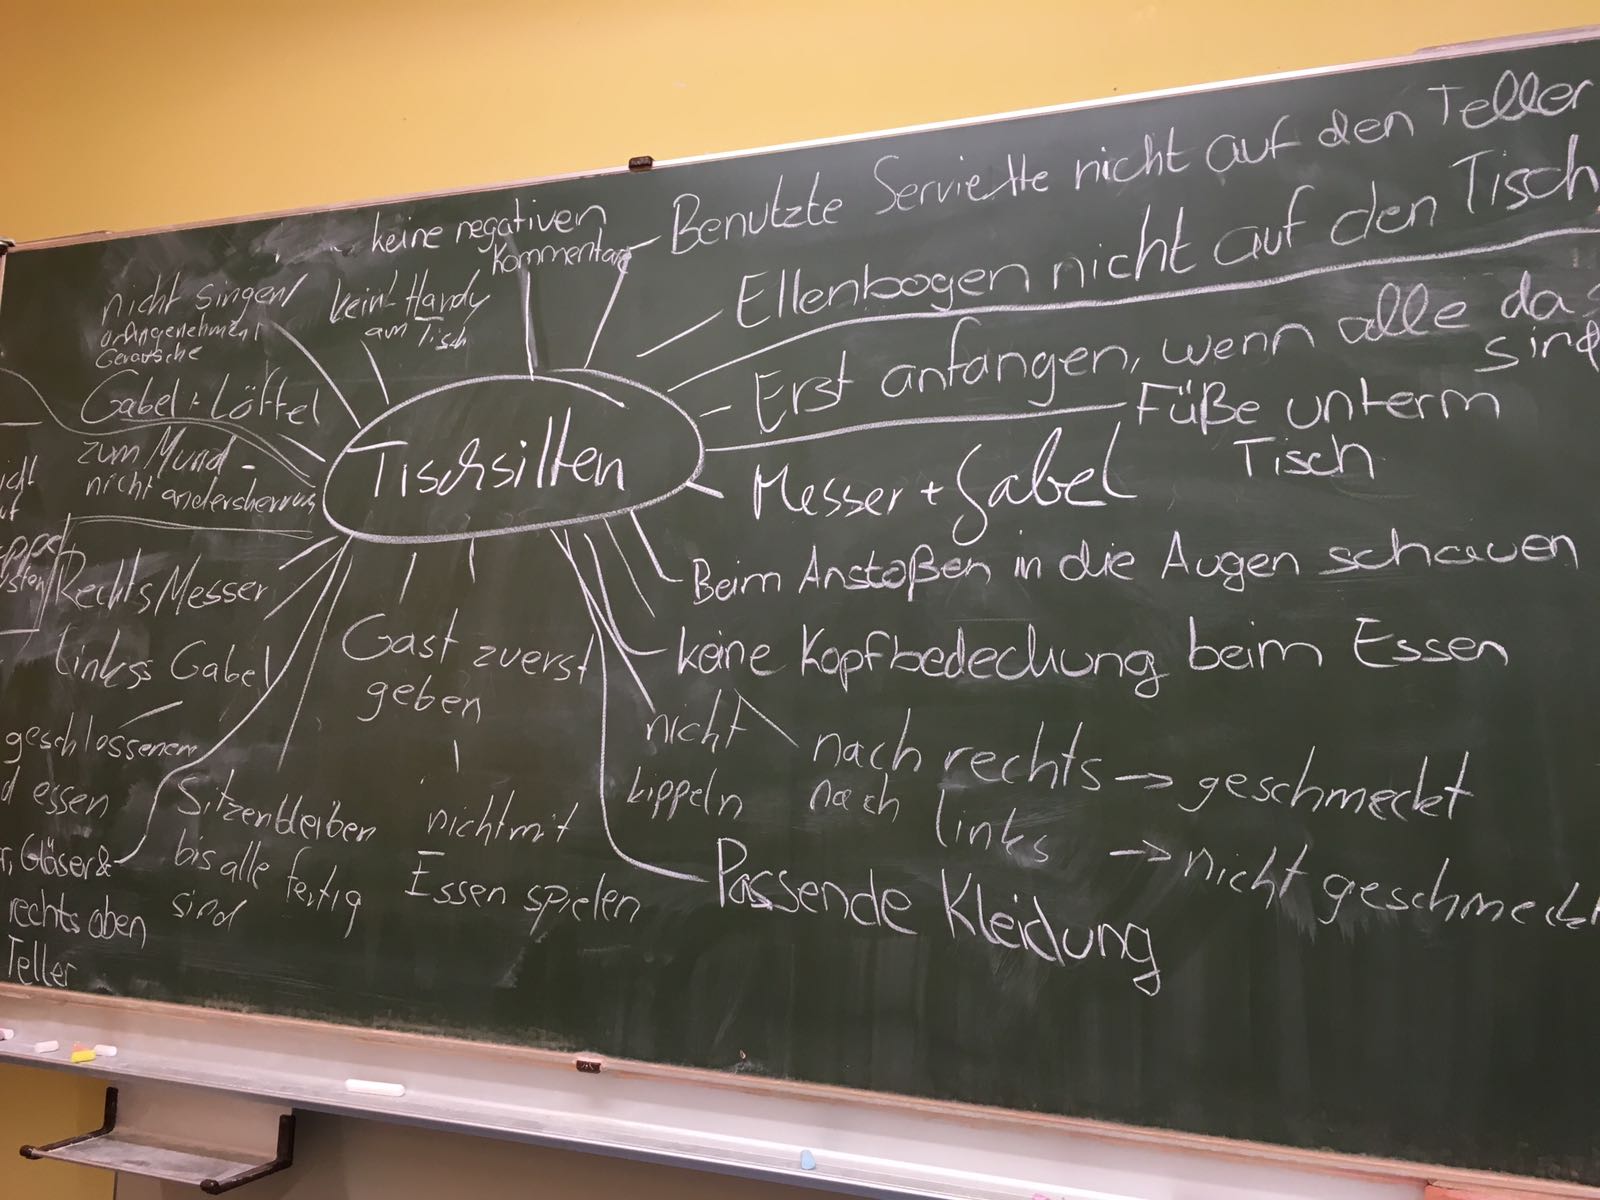 Benutzte Serviette nicht auf den Teller
Ellenbogen nicht auf den Tisch
Erst anfangen, wenn alle da
sind
Füße unterm
Tisch
Messer + Gabel
Beim Anstoßen in die Augen schauen
keine Kopfbedeckung beim Essen
nach rechts → geschmeckt
nach links → nicht geschmeckt
Passende Kleidung
nicht
kippeln
Tischsitten
keine negativen
Kommentare
kein Handy
am Tisch
nicht singen/
Geräusche
Gabel + Löffel
zum Mund -
nicht andersherum
Rechts Messer
Links Gabel
geschlossenem
essen
Gläser &
rechts oben
Teller
Sitzenbleiben
bis alle fertig
sind
Gast zuerst
geben
nicht mit
Essen spielen